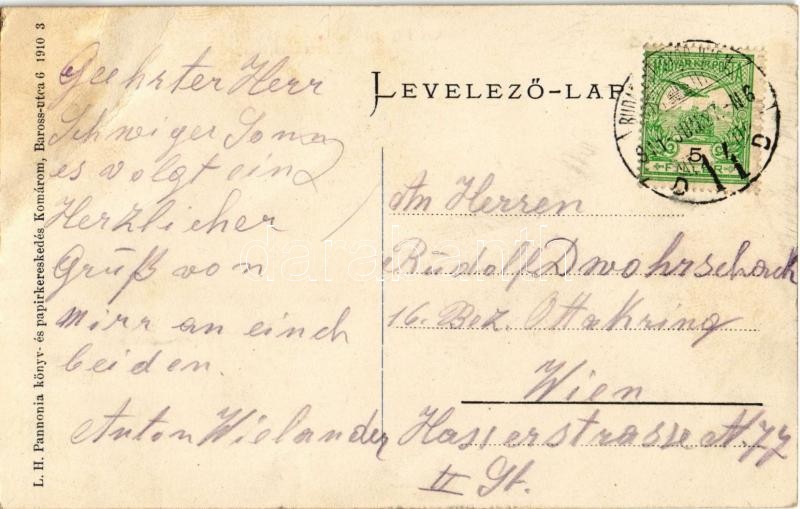 L. H. Pannonia könyv- és papirkereskedés Komárom, Baross-utca 6 1910 3
LEVELEZŐ-LAP
MAGYAR KIR. POSTA
5
FILLÉR
Geehrter Herr
Schwiger Sona
es volgt ein
Herzlicher
Gruß von
mirr an einch
beiden.
Anton Wielander
An Herren
Rudolf Dwohrschack
16. Bez. Ottakring
Wien
Hasserstrasse N. 77
II St.
darabanth